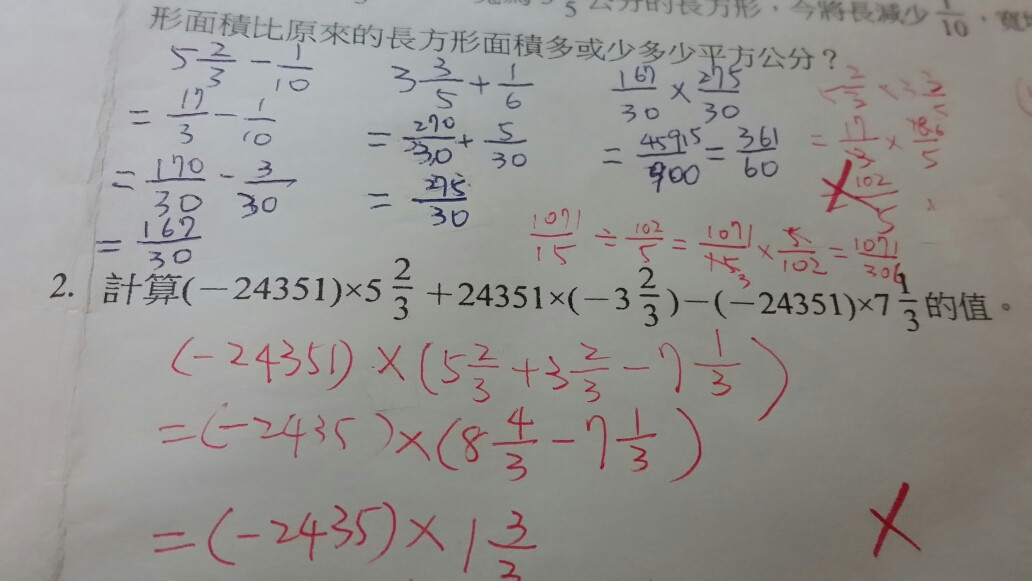 5 公分的長方形，今將長減少 1/10，寬
形面積比原來的長方形面積多或少多少平方公分？
5 2/3 - 1/10
= 17/3 - 1/10
= 170/30 - 3/30
= 167/30
3 3/5 + 1/6
= 270/30 + 5/30
= 275/30
167/30 × 275/30
= 45915/900 = 361/60
= 17/3 ×
102/5
1071/15 ÷ 102/5 = 1071/15 3 × 5/102 = 1071/306
2. 計算(－24351)×5 2/3 ＋24351×(－3 2/3)－(－24351)×7 1/3 的值。
(-24351) × (5 2/3 + 3 2/3 - 7 1/3)
= (-2435 ) × (8 4/3 - 7 1/3)
= (-2435) × 1 3/3